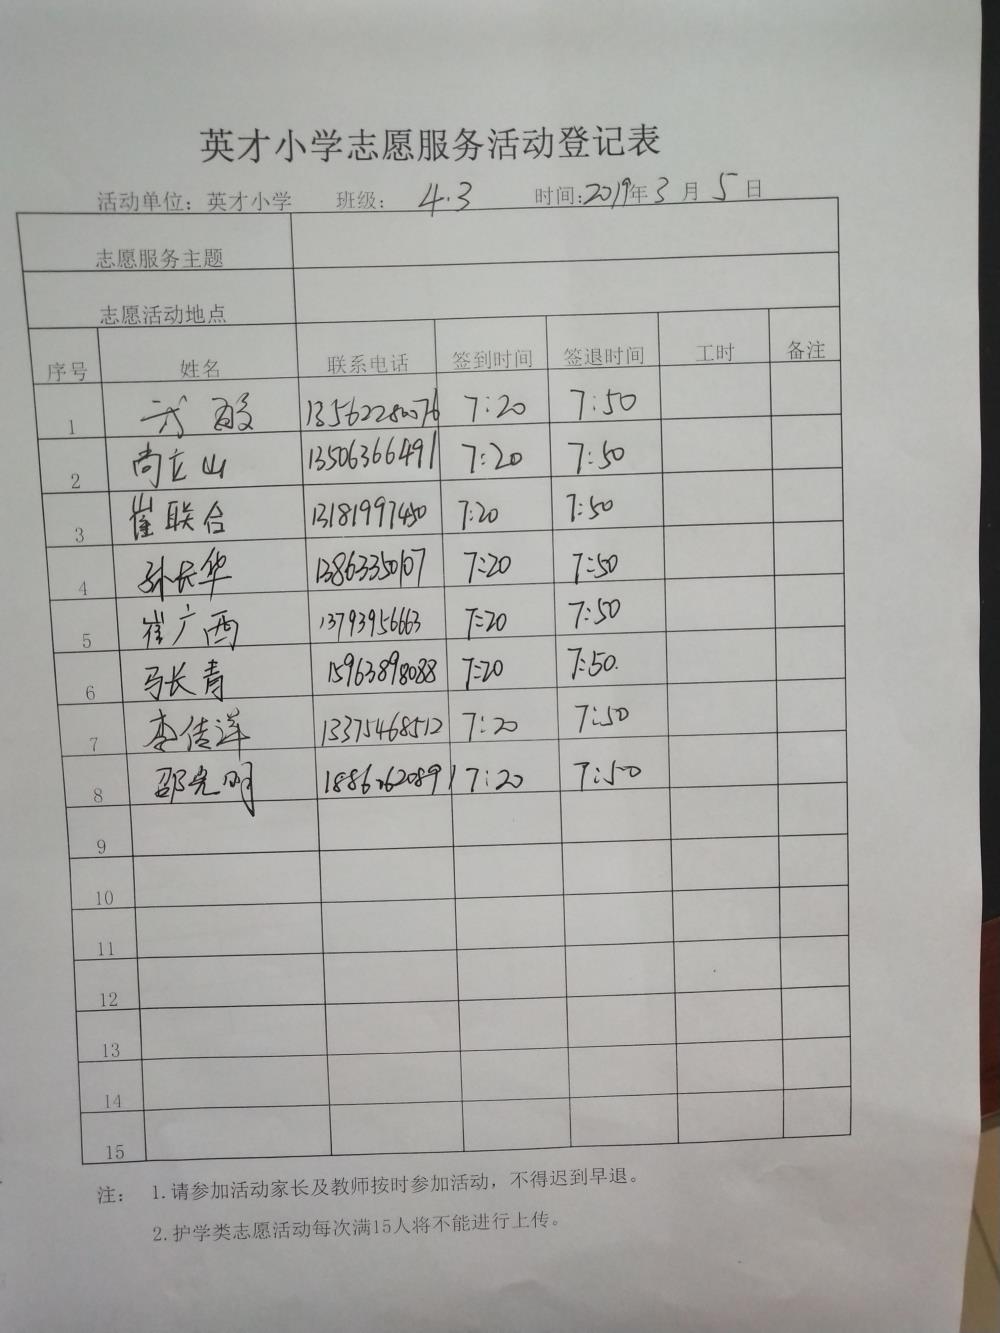 英才小学志愿服务活动登记表
活动单位：英才小学 班级： 4.3 时间:2019年3月5日
志愿服务主题
志愿活动地点
序号 姓名 联系电话 签到时间 签退时间 工时 备注
1 13562280076 7:20 7:50
2 尚立山 13506366491 7:20 7:50
3 崔联合 13181997450 7:20 7:50
4 孙长华 13863350107 7:20 7:50
5 崔广西 13793956663 7:20 7:50
6 长青 15963898088 7:20 7:50.
7 李传洋 13375468512 7:20 7:50
8 邵光明 18862620891 7:20 7:50
9
10
11
12
13
14
15
注： 1.请参加活动家长及教师按时参加活动，不得迟到早退。
2.护学类志愿活动每次满15人将不能进行上传。